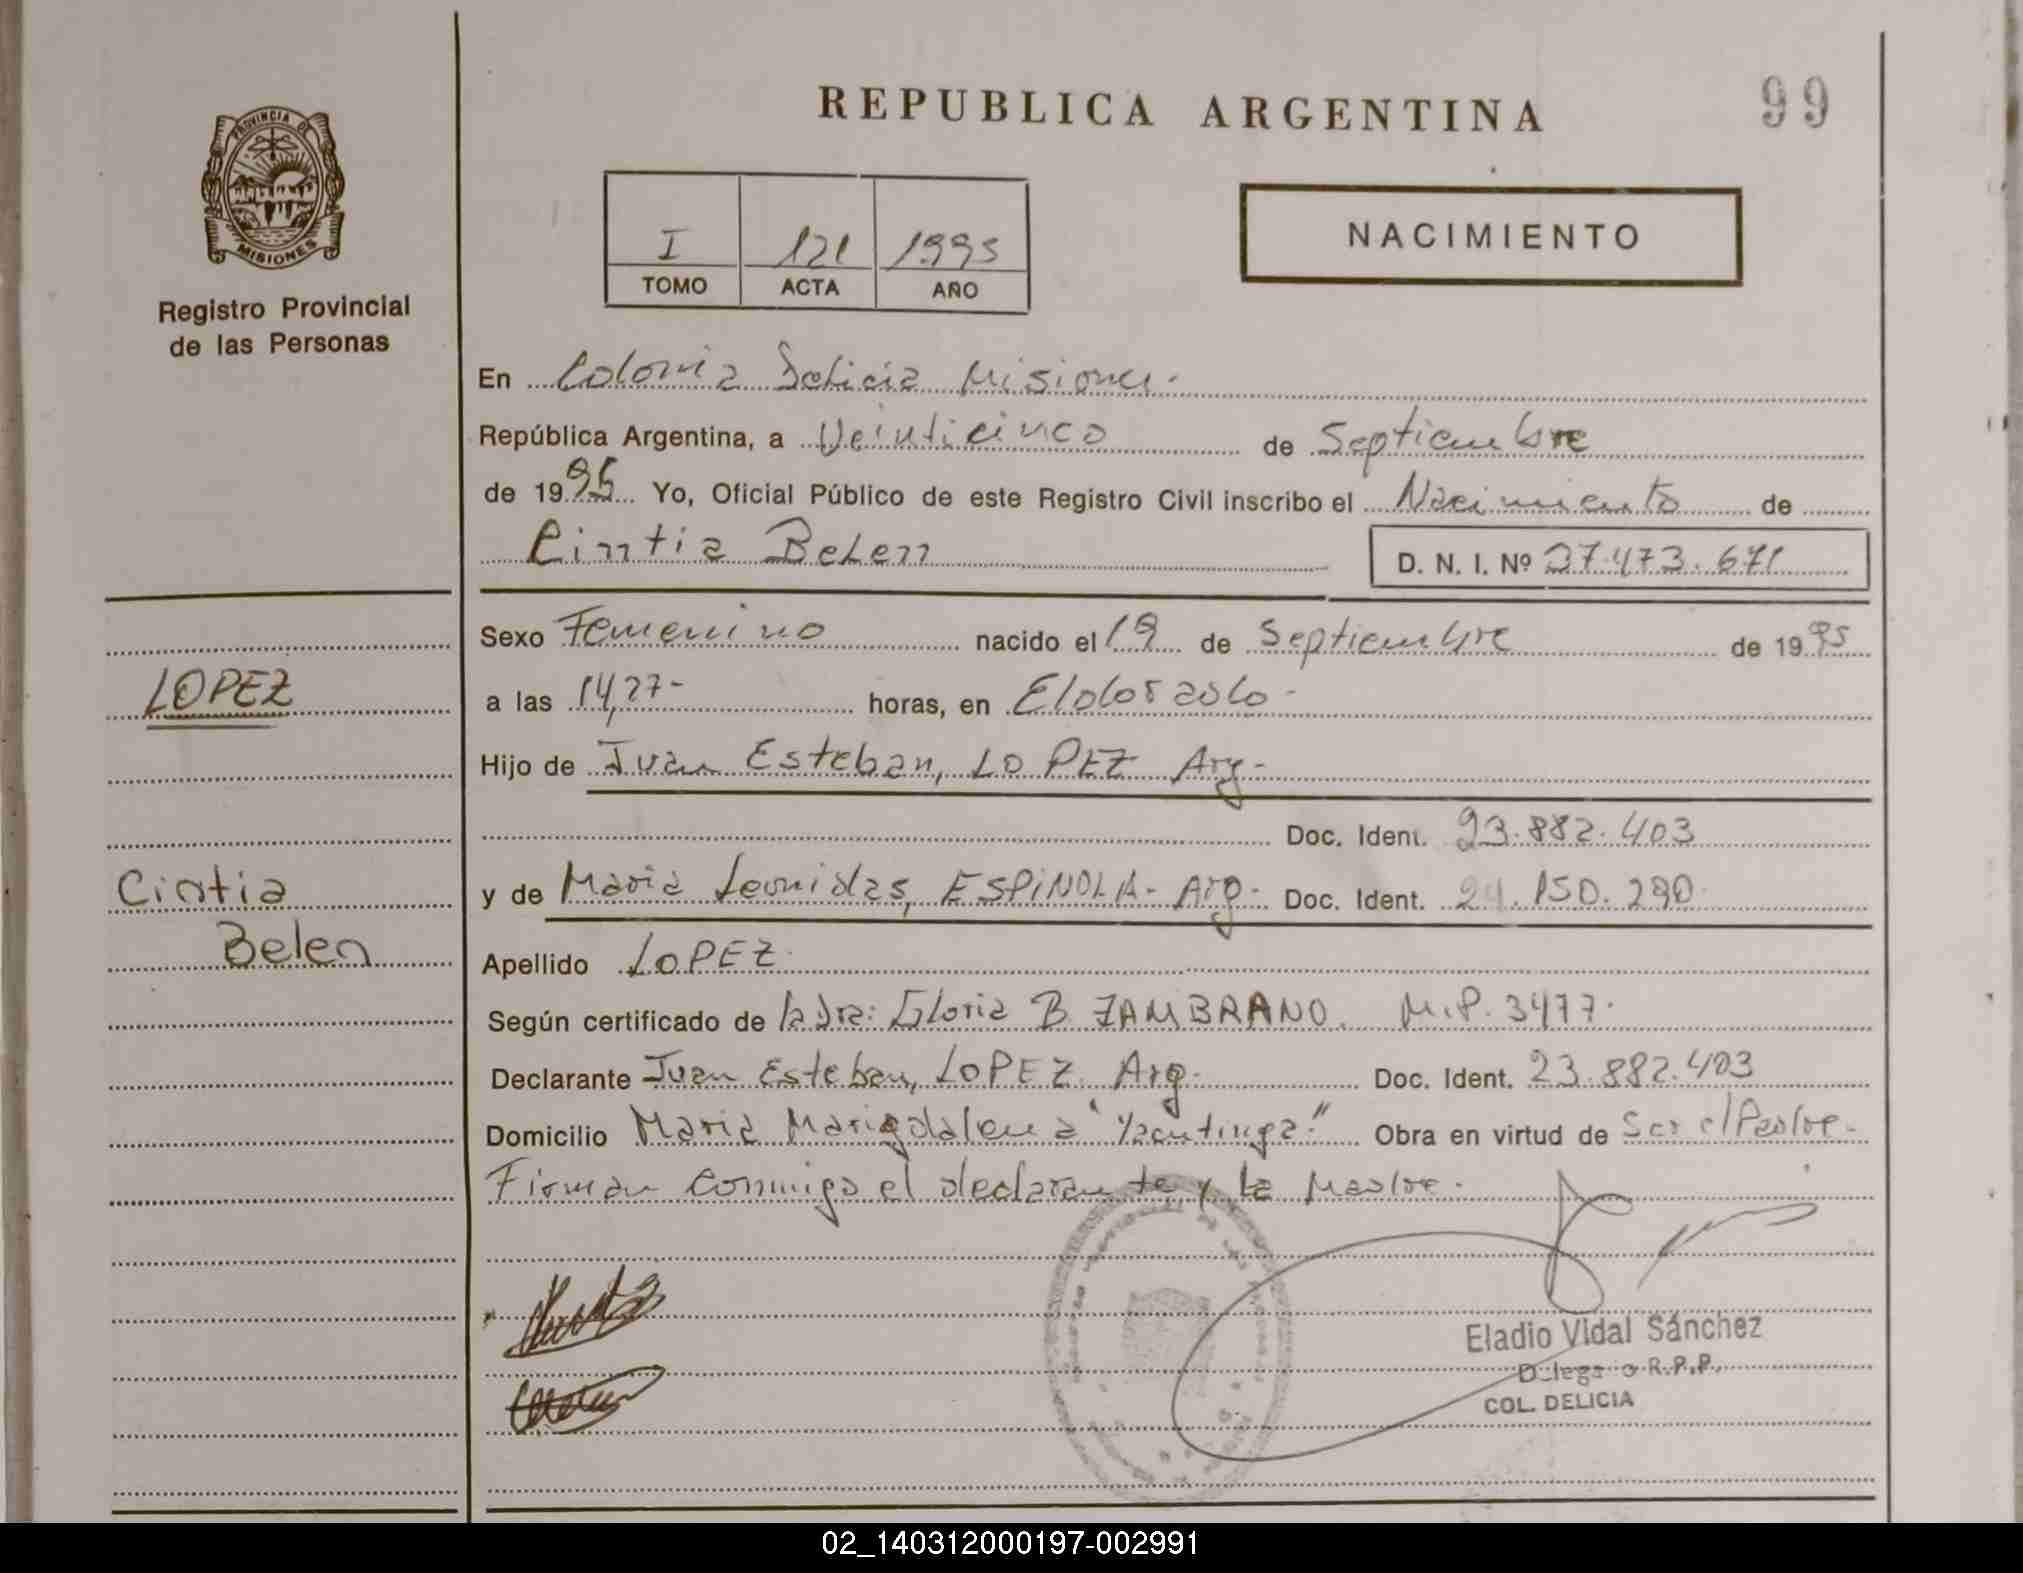 REPUBLICA ARGENTINA
99
PROVINCIA DE
MISIONES
Registro Provincial
de las Personas
I 121 1995
TOMO ACTA AÑO
NACIMIENTO
En Colonia Delicia Misiones.
República Argentina, a Veinticinco de Septiembre
de 1995 Yo, Oficial Público de este Registro Civil inscribo el Nacimiento de
Cintia Belen D. N. I. Nº 37.473.671
Sexo Femenino nacido el 19 de Septiembre de 1995
LOPEZ
a las 14,27- horas, en Eldorado-
Hijo de Juan Esteban, LOPEZ Arg-
Doc. Ident. 23.882.403
Cintia
y de Maria Leonidas, ESPINOLA- Arg- Doc. Ident. 24.150.290
Belen
Apellido LOPEZ
Según certificado de la Dra: Gloria B. ZAMBRANO. M.P. 3477.
Declarante Juan Esteban, LOPEZ. Arg. Doc. Ident. 23.882.403
Domicilio Maria Magdalena "Yacutinga" Obra en virtud de Ser el Padre-
Firman conmigo el declarante y la Madre.
Eladio Vidal Sánchez
R.P.P.
COL. DELICIA
02_140312000197-002991